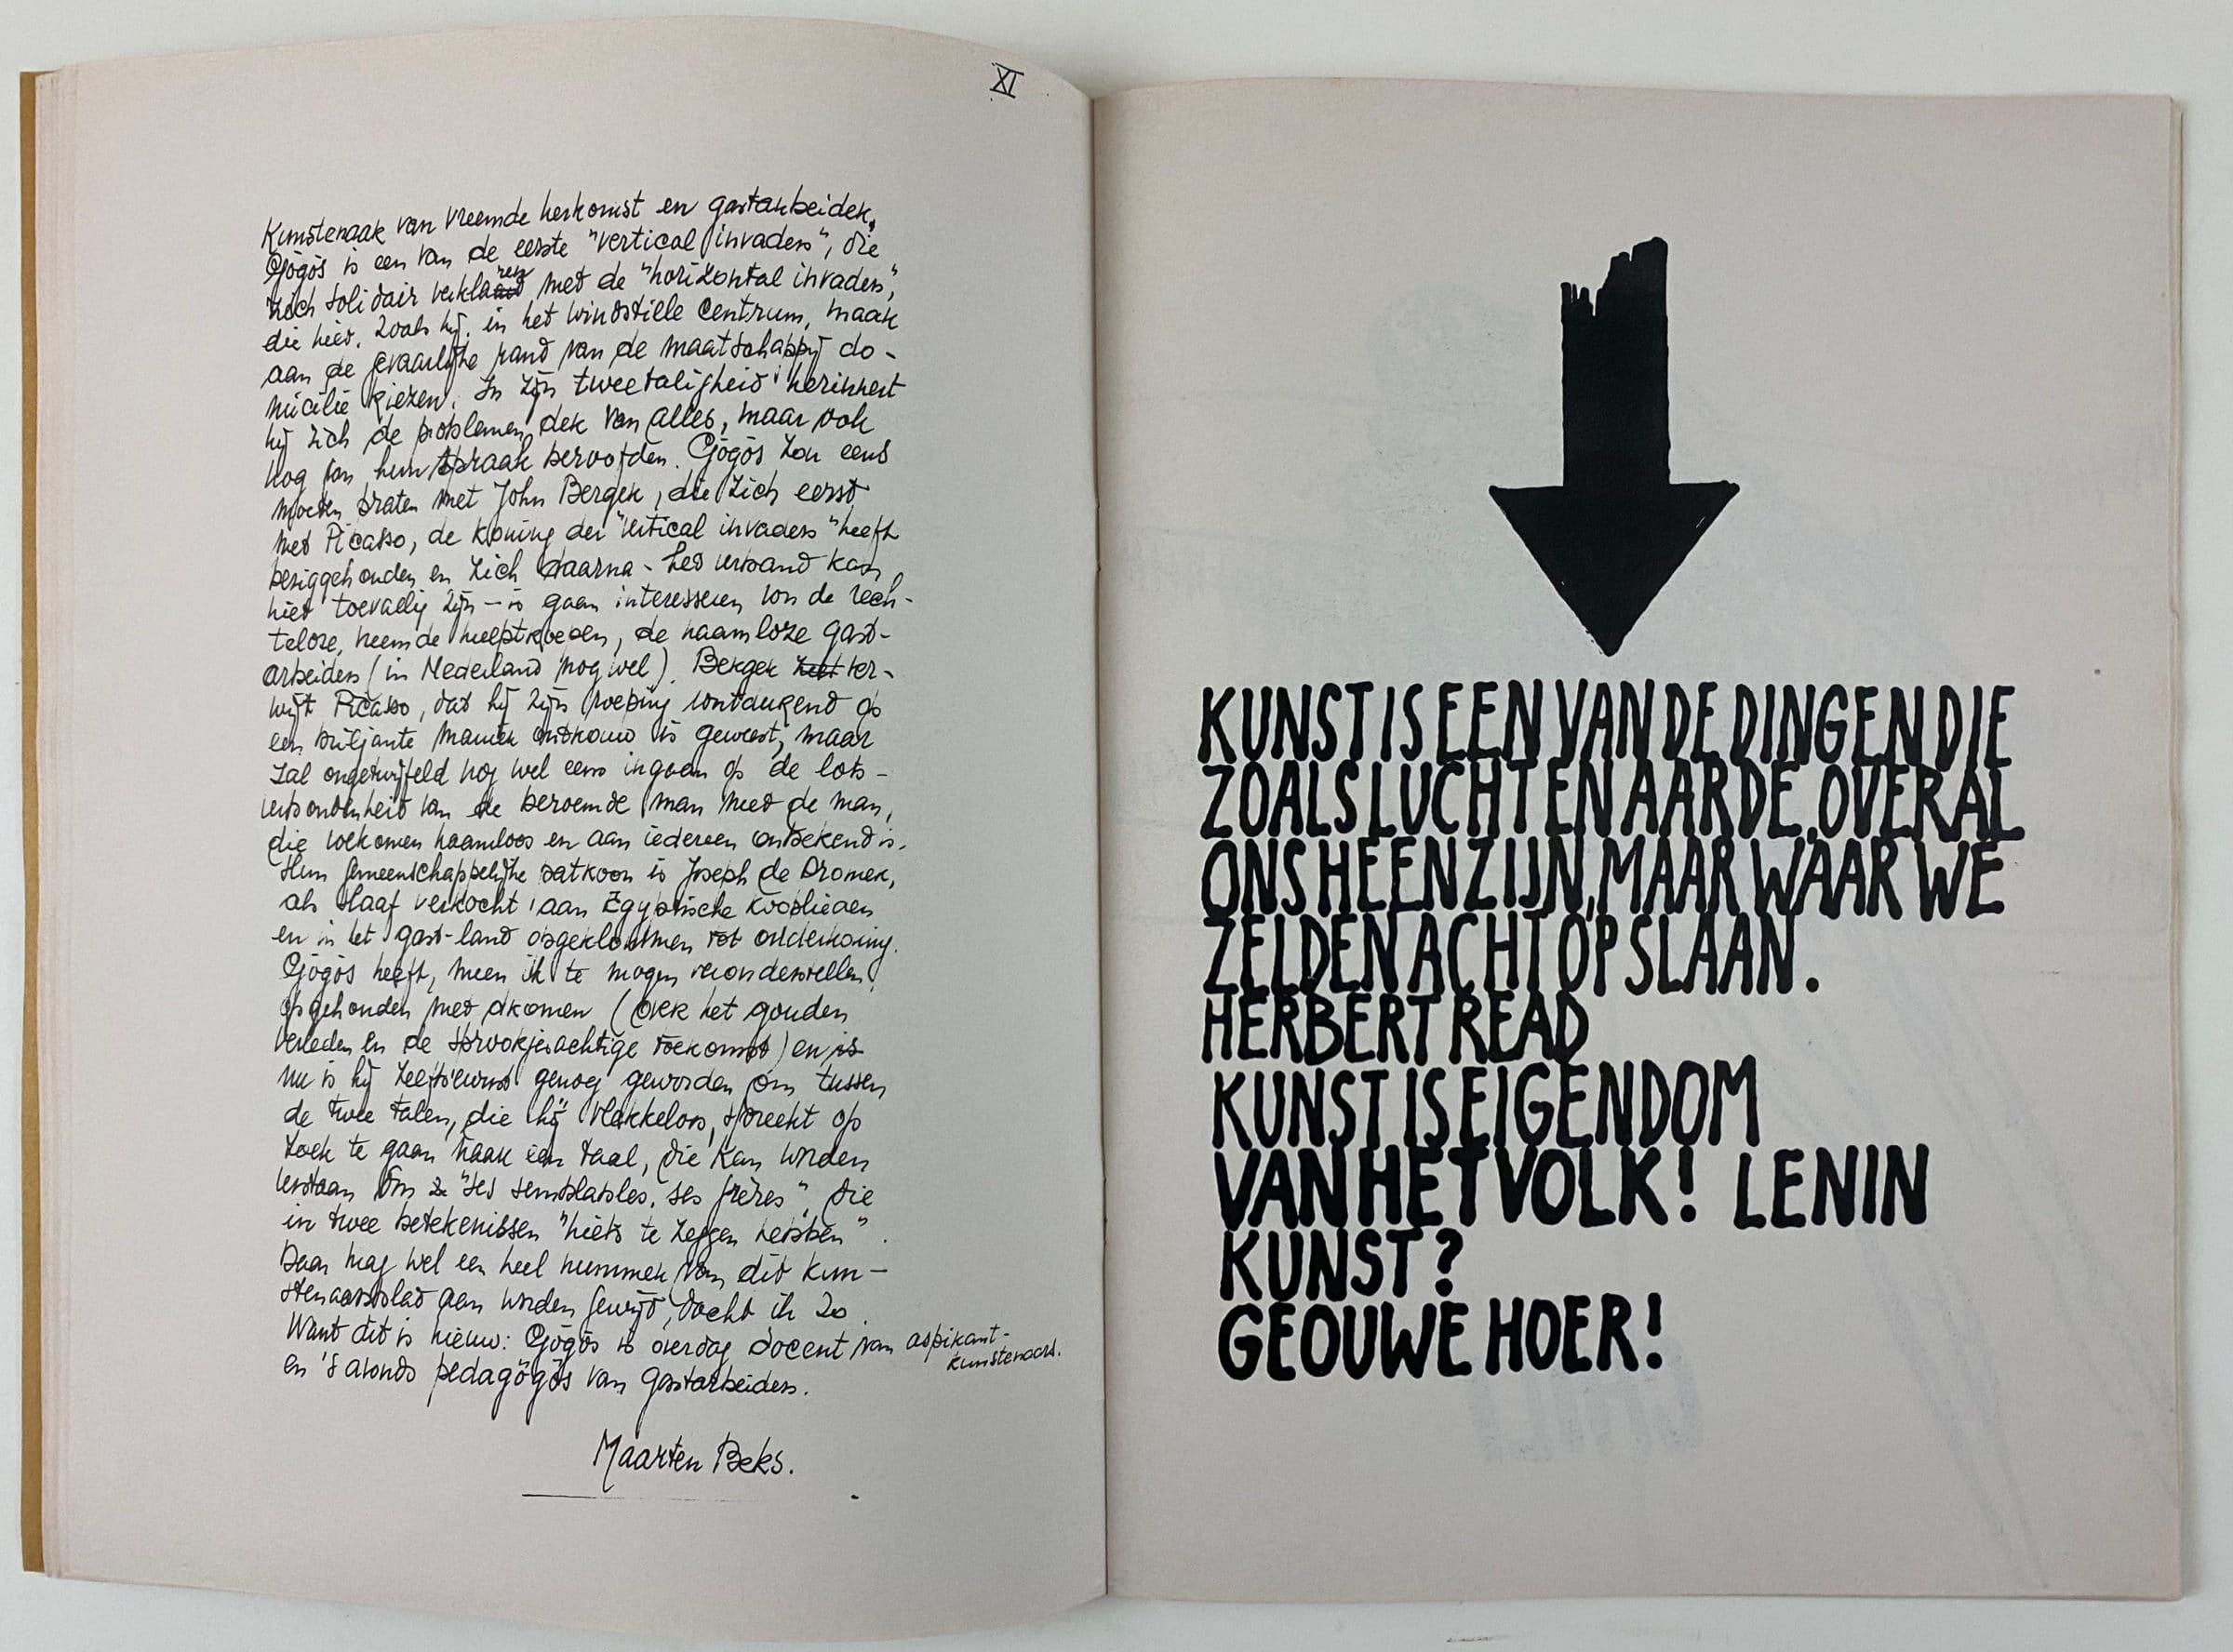 XI
Kunstenaar van vreemde herkomst en gastarbeider,
Gögös is een van de eerste "vertical invaders", die
zich solidair verklaren met de "horizontal invaders",
die niet, zoals hij, in het windstille centrum, maar
aan de gevaarlijke rand van de maatschappij do-
micilie kiezen. In zijn tweetaligheid herinnert
hij zich de problemen der van alles, maar ook
nog van hun spraak beroofden. Gögös zou eens
moeten praten met John Berger, die zich eerst
met Picasso, de koning der "vertical invaders" heeft
beziggehouden en zich daarna - het verband kan
niet toevallig zijn - is gaan interesseren voor de rech-
teloze, vreemde hulptroepen, de naamloze gast-
arbeiders (in Nederland nog wel). Berger ver-
wijt Picasso, dat hij zijn roeping verontdeugend op
een briljante manier ontrouw is geweest, maar
zal ongetwijfeld nog wel eens ingaan op de lots-
verbondenheid van de beroemde man met de man,
die volkomen naamloos en aan iedereen onbekend is.
Hun gemeenschappelijke patroon is Joseph de Dromer,
als slaaf verkocht aan Egyptische kooplieden
en in het gast-land opgeklommen tot onderkoning.
Gögös heeft, meen ik te mogen veronderstellen,
opgehouden met dromen (over het gouden
verleden en de sprookjesachtige toekomst) en is
nu is hij leeftijd genoeg geworden om tussen
de twee talen, die hij vlekkeloos spreekt op
zoek te gaan naar een taal, die kan worden
verstaan door "ses semblables, ses frères", die
in twee betekenissen "niets te zeggen hebben".
Daar mag wel een heel nummer van dit kun-
stenaarsblad aan worden gewijd, dacht ik zo.
Want dit is nieuw: Gögös is overdag docent van aspirant-
kunstenaars.
en 's avonds pedagögös van gastarbeiders.
Maarten Beks.
KUNST IS EEN VAN DE DINGEN DIE
ZOALS LUCHT EN AARDE, OVERAL
ONS HEEN ZIJN, MAAR WAAR WE
ZELDEN ACHT OP SLAAN.
HERBERT READ
KUNST IS EIGENDOM
VAN HET VOLK! LENIN
KUNST?
GEOUWE HOER!